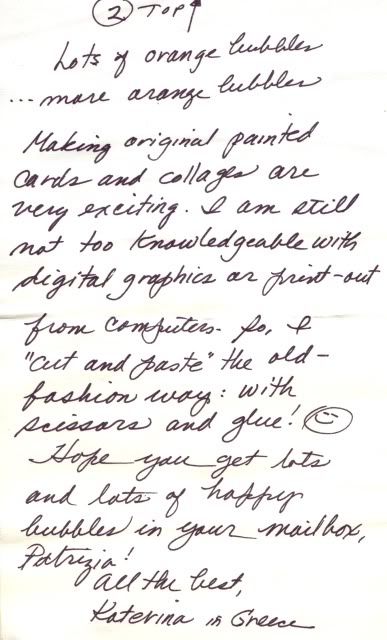 ② TOP ↑
Lots of orange bubbles
...more orange bubbles
Making original painted
cards and collages are
very exciting. I am still
not too knowledgeable with
digital graphics or print-out
from computers. So, I
"cut and paste" the old-
fashion way: with
scissors and glue! ☺
Hope you get lots
and lots of happy
bubbles in your mailbox,
Patrizia!
All the best,
Katerina in Greece